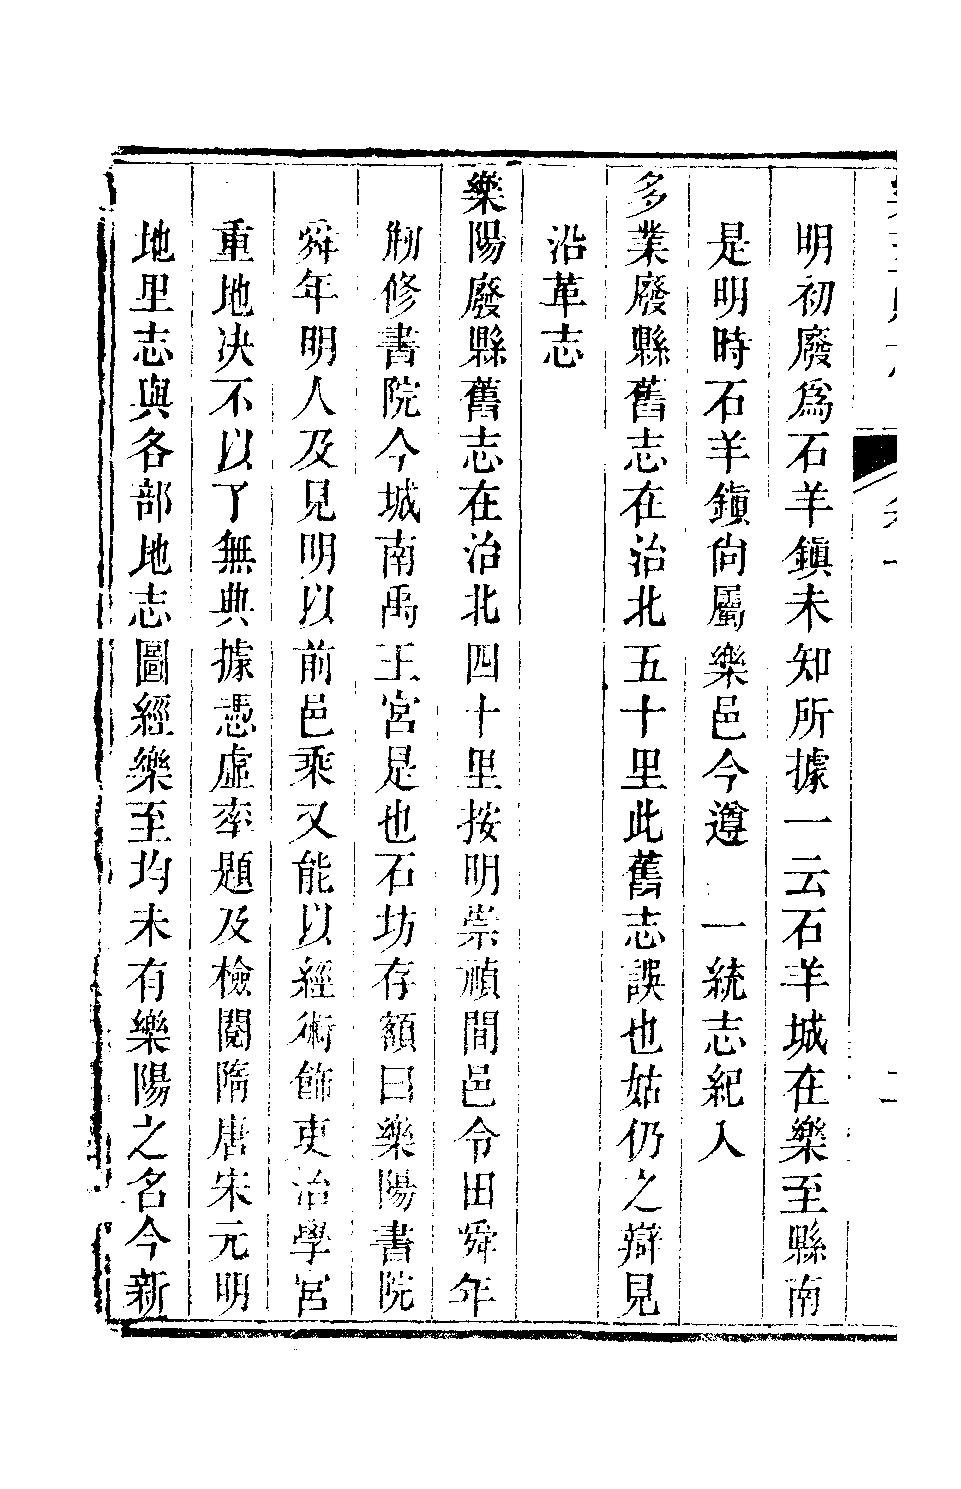 明初廢爲石羊鎭未知所據一云石羊城在樂至縣南
是明時石羊鎭尙屬樂邑今遵 一統志紀入
多業廢縣舊志在治北五十里此舊志誤也姑仍之辯見
沿革志
樂陽廢縣舊志在治北四十里按明崇禎間邑令田舜年
剏修書院今城南禹王宮是也石坊存額曰樂陽書院
舜年明人及見明以前邑乘又能以經術飾吏治學宮
重地決不以了無典據憑虛率題及檢閱隋唐宋元明
地里志與各部地志圖經樂至均未有樂陽之名今新